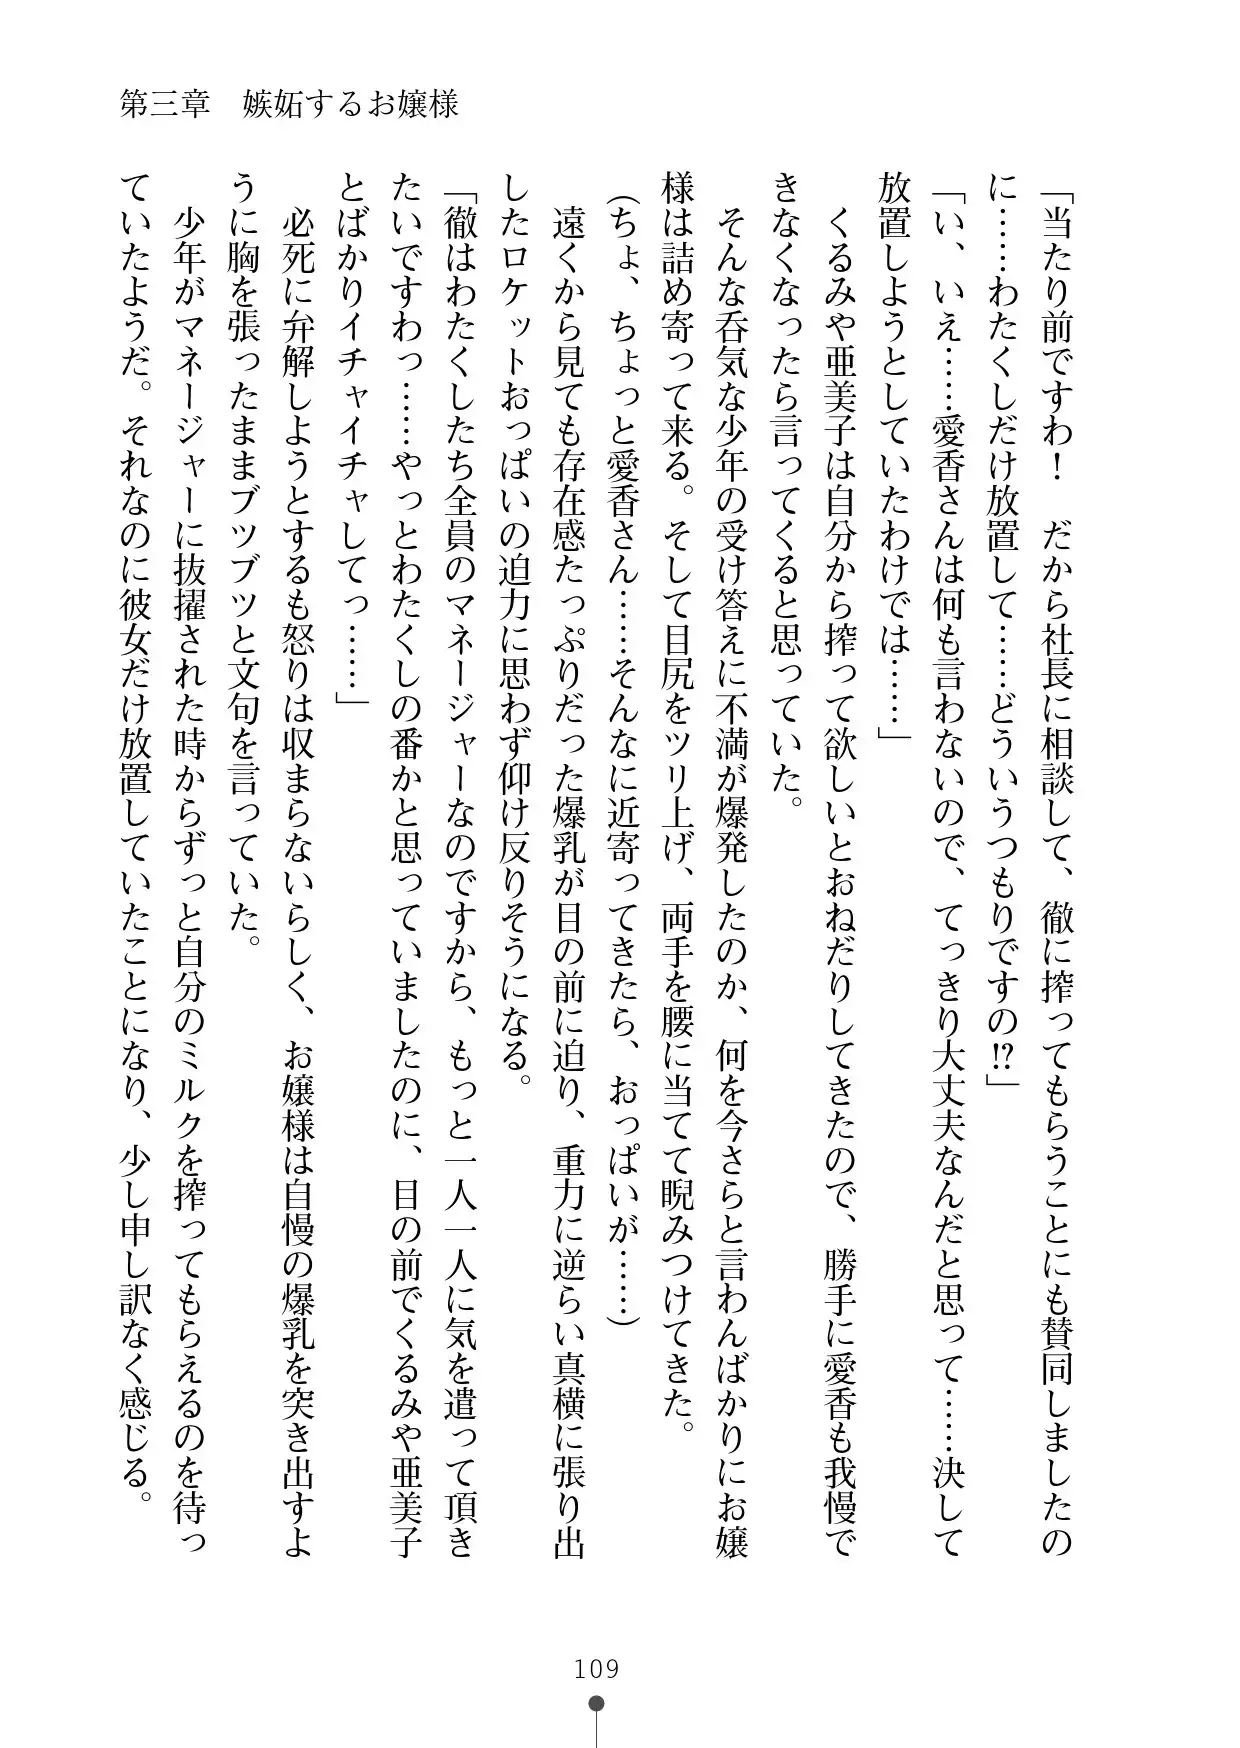 第三章　嫉妬するお嬢様
「当たり前ですわ！　だから社長に相談して、徹に搾ってもらうことにも賛同しましたの
に……わたくしだけ放置して……どういうつもりですの!?」
「い、いえ……愛香さんは何も言わないので、てっきり大丈夫なんだと思って……決して
放置しようとしていたわけでは……」
　くるみや亜美子は自分から搾って欲しいとおねだりしてきたので、勝手に愛香も我慢で
きなくなったら言ってくると思っていた。
　そんな呑気な少年の受け答えに不満が爆発したのか、何を今さらと言わんばかりにお嬢
様は詰め寄って来る。そして目尻をツリ上げ、両手を腰に当てて睨みつけてきた。
（ちょ、ちょっと愛香さん……そんなに近寄ってきたら、おっぱいが……）
　遠くから見ても存在感たっぷりだった爆乳が目の前に迫り、重力に逆らい真横に張り出
したロケットおっぱいの迫力に思わず仰け反りそうになる。
「徹はわたくしたち全員のマネージャーなのですから、もっと一人一人に気を遣って頂き
たいですわっ……やっとわたくしの番かと思っていましたのに、目の前でくるみや亜美子
とばかりイチャイチャしてっ……」
　必死に弁解しようとするも怒りは収まらないらしく、お嬢様は自慢の爆乳を突き出すよ
うに胸を張ったままブツブツと文句を言っていた。
　少年がマネージャーに抜擢された時からずっと自分のミルクを搾ってもらえるのを待っ
ていたようだ。それなのに彼女だけ放置していたことになり、少し申し訳なく感じる。
109